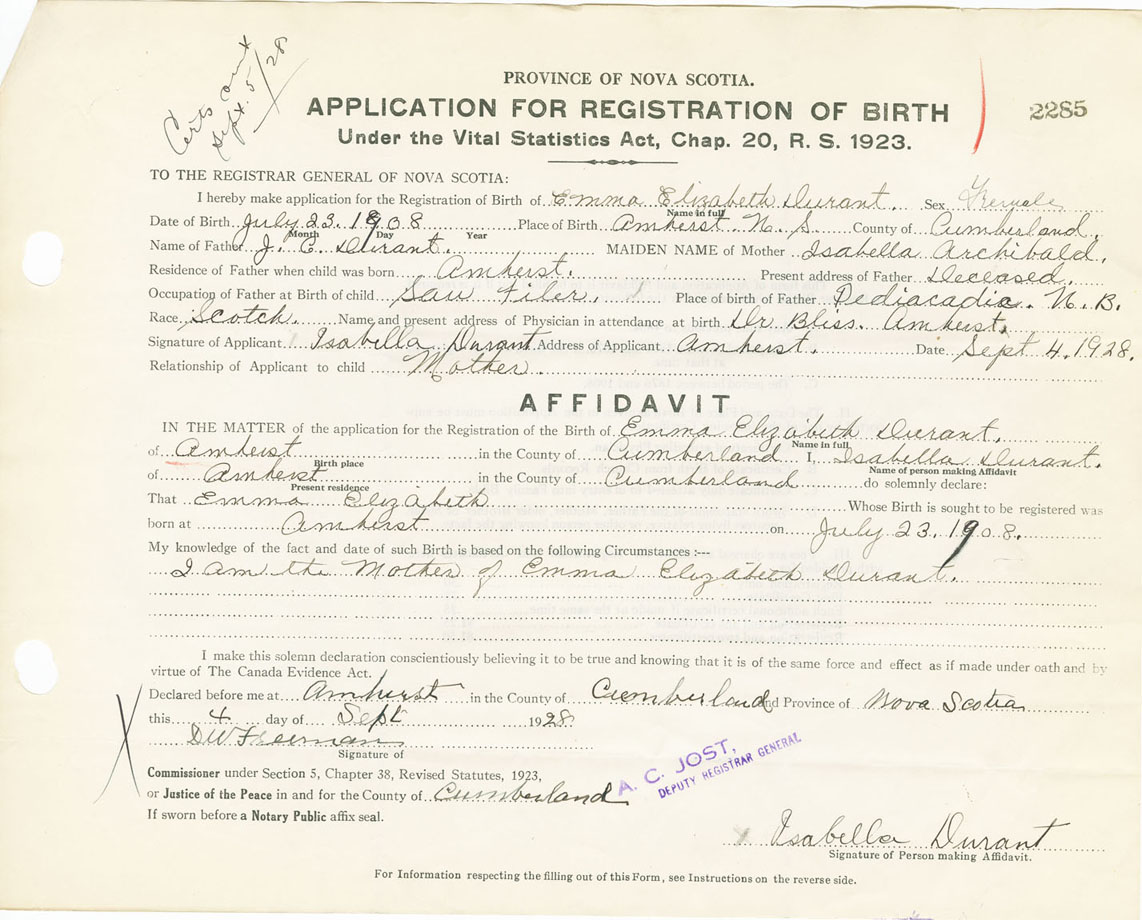 Certs sent
Sept. 5/28
PROVINCE OF NOVA SCOTIA.
APPLICATION FOR REGISTRATION OF BIRTH
2285
Under the Vital Statistics Act, Chap. 20, R. S. 1923.
TO THE REGISTRAR GENERAL OF NOVA SCOTIA:
I hereby make application for the Registration of Birth of Emma Elizabeth Durant. Sex Female
Name in full
Date of Birth July 23. 1908 Place of Birth Amherst N. S. County of Cumberland.
Month Day Year
Name of Father J. C. Durant. MAIDEN NAME of Mother Isabella Archibald.
Residence of Father when child was born Amherst. Present address of Father Deceased.
Occupation of Father at Birth of child Saw Filer. Place of birth of Father Pediacadic. N. B.
Race Scotch. Name and present address of Physician in attendance at birth Dr Bliss. Amherst.
Signature of Applicant Isabella Durant Address of Applicant Amherst. Date Sept 4. 1928.
Relationship of Applicant to child Mother.
AFFIDAVIT
IN THE MATTER of the application for the Registration of the Birth of Emma Elizabeth Durant.
Name in full
of Amherst in the County of Cumberland I, Isabella Durant.
Birth place Name of person making Affidavit
of Amherst in the County of Cumberland do solemnly declare:
Present residence
That Emma Elizabeth Whose Birth is sought to be registered was
born at Amherst on July 23. 1908.
My knowledge of the fact and date of such Birth is based on the following Circumstances :---
I am the Mother of Emma Elizabeth Durant.
I make this solemn declaration conscientiously believing it to be true and knowing that it is of the same force and effect as if made under oath and by
virtue of The Canada Evidence Act.
Declared before me at Amherst in the County of Cumberland and Province of Nova Scotia
this 4 day of Sept 1928
DW Freeman
Signature of
Commissioner under Section 5, Chapter 38, Revised Statutes, 1923,
or Justice of the Peace in and for the County of Cumberland
A. C. JOST,
DEPUTY REGISTRAR GENERAL
If sworn before a Notary Public affix seal.
Isabella Durant
Signature of Person making Affidavit.
For Information respecting the filling out of this Form, see Instructions on the reverse side.